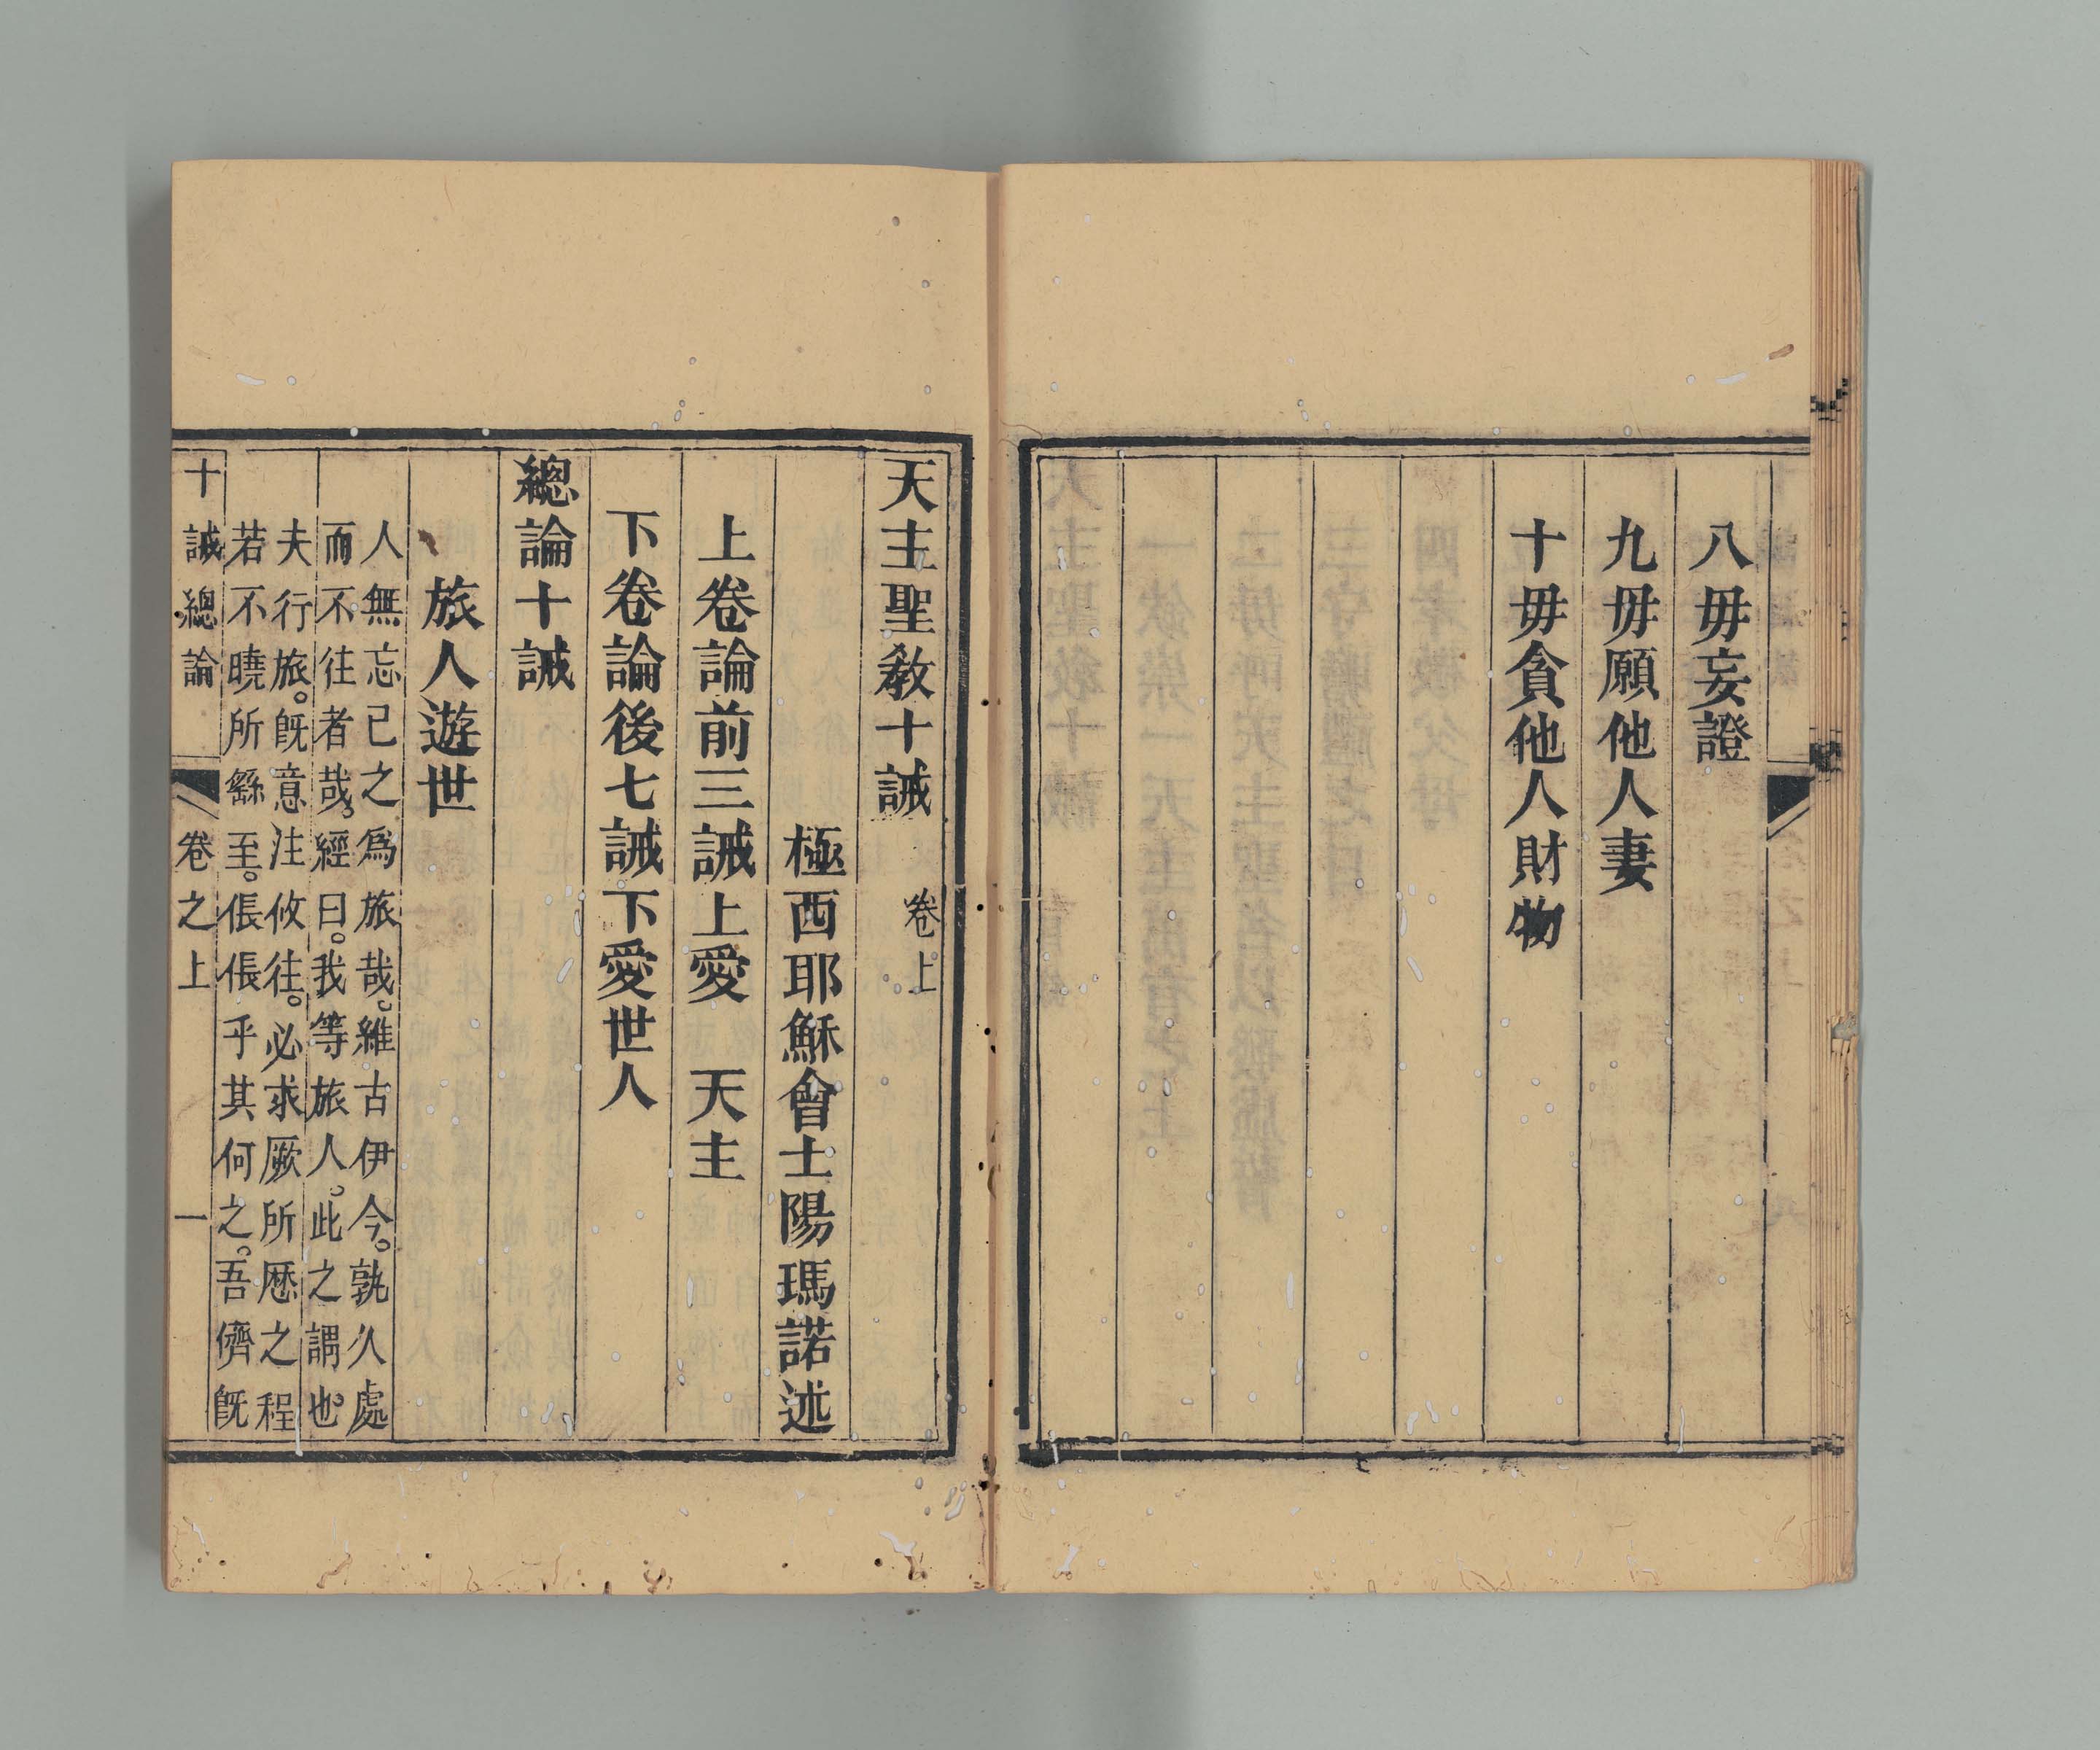 八毋妄證
九毋願他人妻
十毋貪他人財物
天主聖教十誡 卷上
極西耶穌會士陽瑪諾述
上卷論前三誡上愛 天主
下卷論後七誡下愛世人
總論十誡
旅人遊世
人無忘己之爲旅哉。維古伊今。孰久處
而不往者哉。經曰。我等旅人。此之謂也。
夫行旅。旣意注攸往。必求厥所歷之程
若不曉所繇至。倀倀乎其何之。吾儕旣
十誡總論 卷之上 一